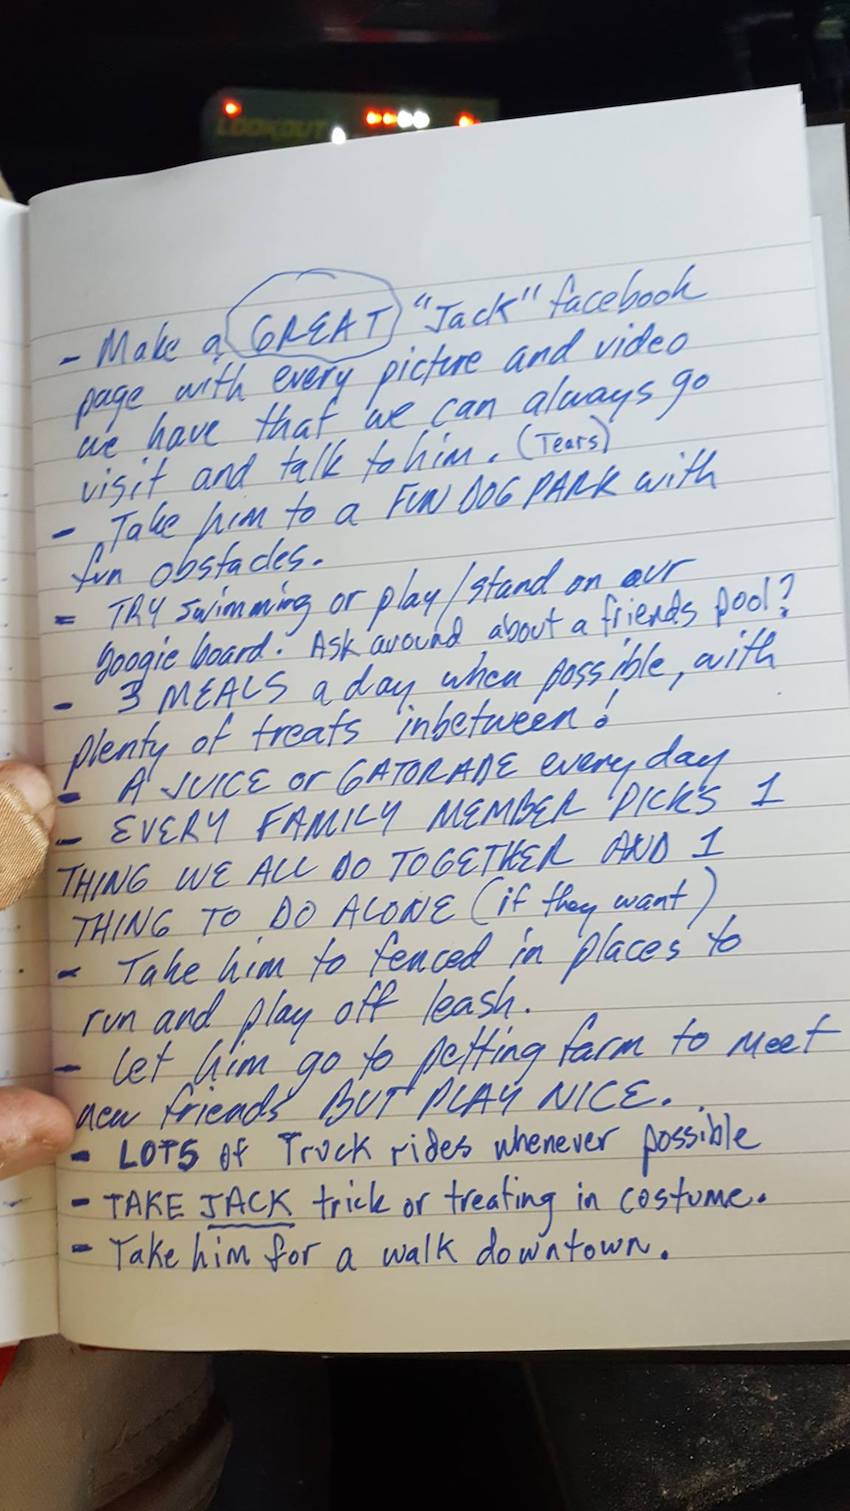 LOOKOUT
- Make a GREAT "Jack" facebook
page with every picture and video
we have that we can always go
visit and talk to him. (Tears)
- Take him to a FUN DOG PARK with
fun obstacles.
- TRY swimming or play/stand on our
Boogie board. Ask around about a friends pool?
- 3 MEALS a day when possible, with
plenty of treats inbetween!
- A JUICE or GATORADE every day
- EVERY FAMILY MEMBER PICKS 1
THING WE ALL DO TOGETHER AND 1
THING TO DO ALONE (if they want)
- Take him to fenced in places to
run and play off leash.
- Let him go to petting farm to meet
new friends BUT PLAY NICE.
- LOTS of Truck rides whenever possible
- TAKE JACK trick or treating in costume.
- Take him for a walk downtown.